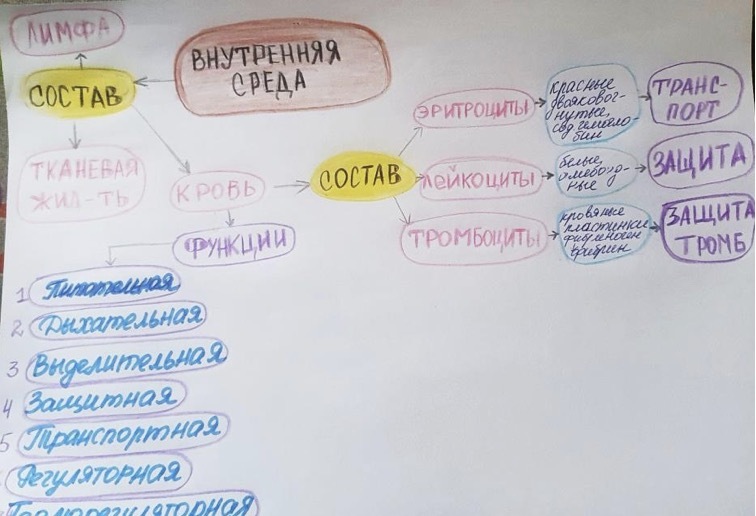 ЛИМФА
ВНУТРЕННЯЯ
СРЕДА
СОСТАВ
ТКАНЕВАЯ
ЖИД-ТЬ
КРОВЬ
СОСТАВ
ЭРИТРОЦИТЫ
красные
двояковог-
нутые,
сод гемогло-
бин
ТРАНС-
ПОРТ
ЛЕЙКОЦИТЫ
белые,
амебоид-
ные
ЗАЩИТА
ТРОМБОЦИТЫ
кровяные
пластинки
фибриноген
фибрин
ЗАЩИТА
ТРОМБ
ФУНКЦИИ
1 Питательная
2 Дыхательная
3 Выделительная
4 Защитная
5 Транспортная
Регуляторная
Терморегуляторная